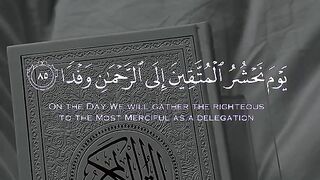 يَوْمَ نَحْشُرُ الْمُتَّقِينَ إِلَى الرَّحْمَٰنِ وَفْدًا ٨٥
ON THE DAY WE WILL GATHER THE RIGHTEOUS
TO THE MOST MERCIFUL AS A DELEGATION